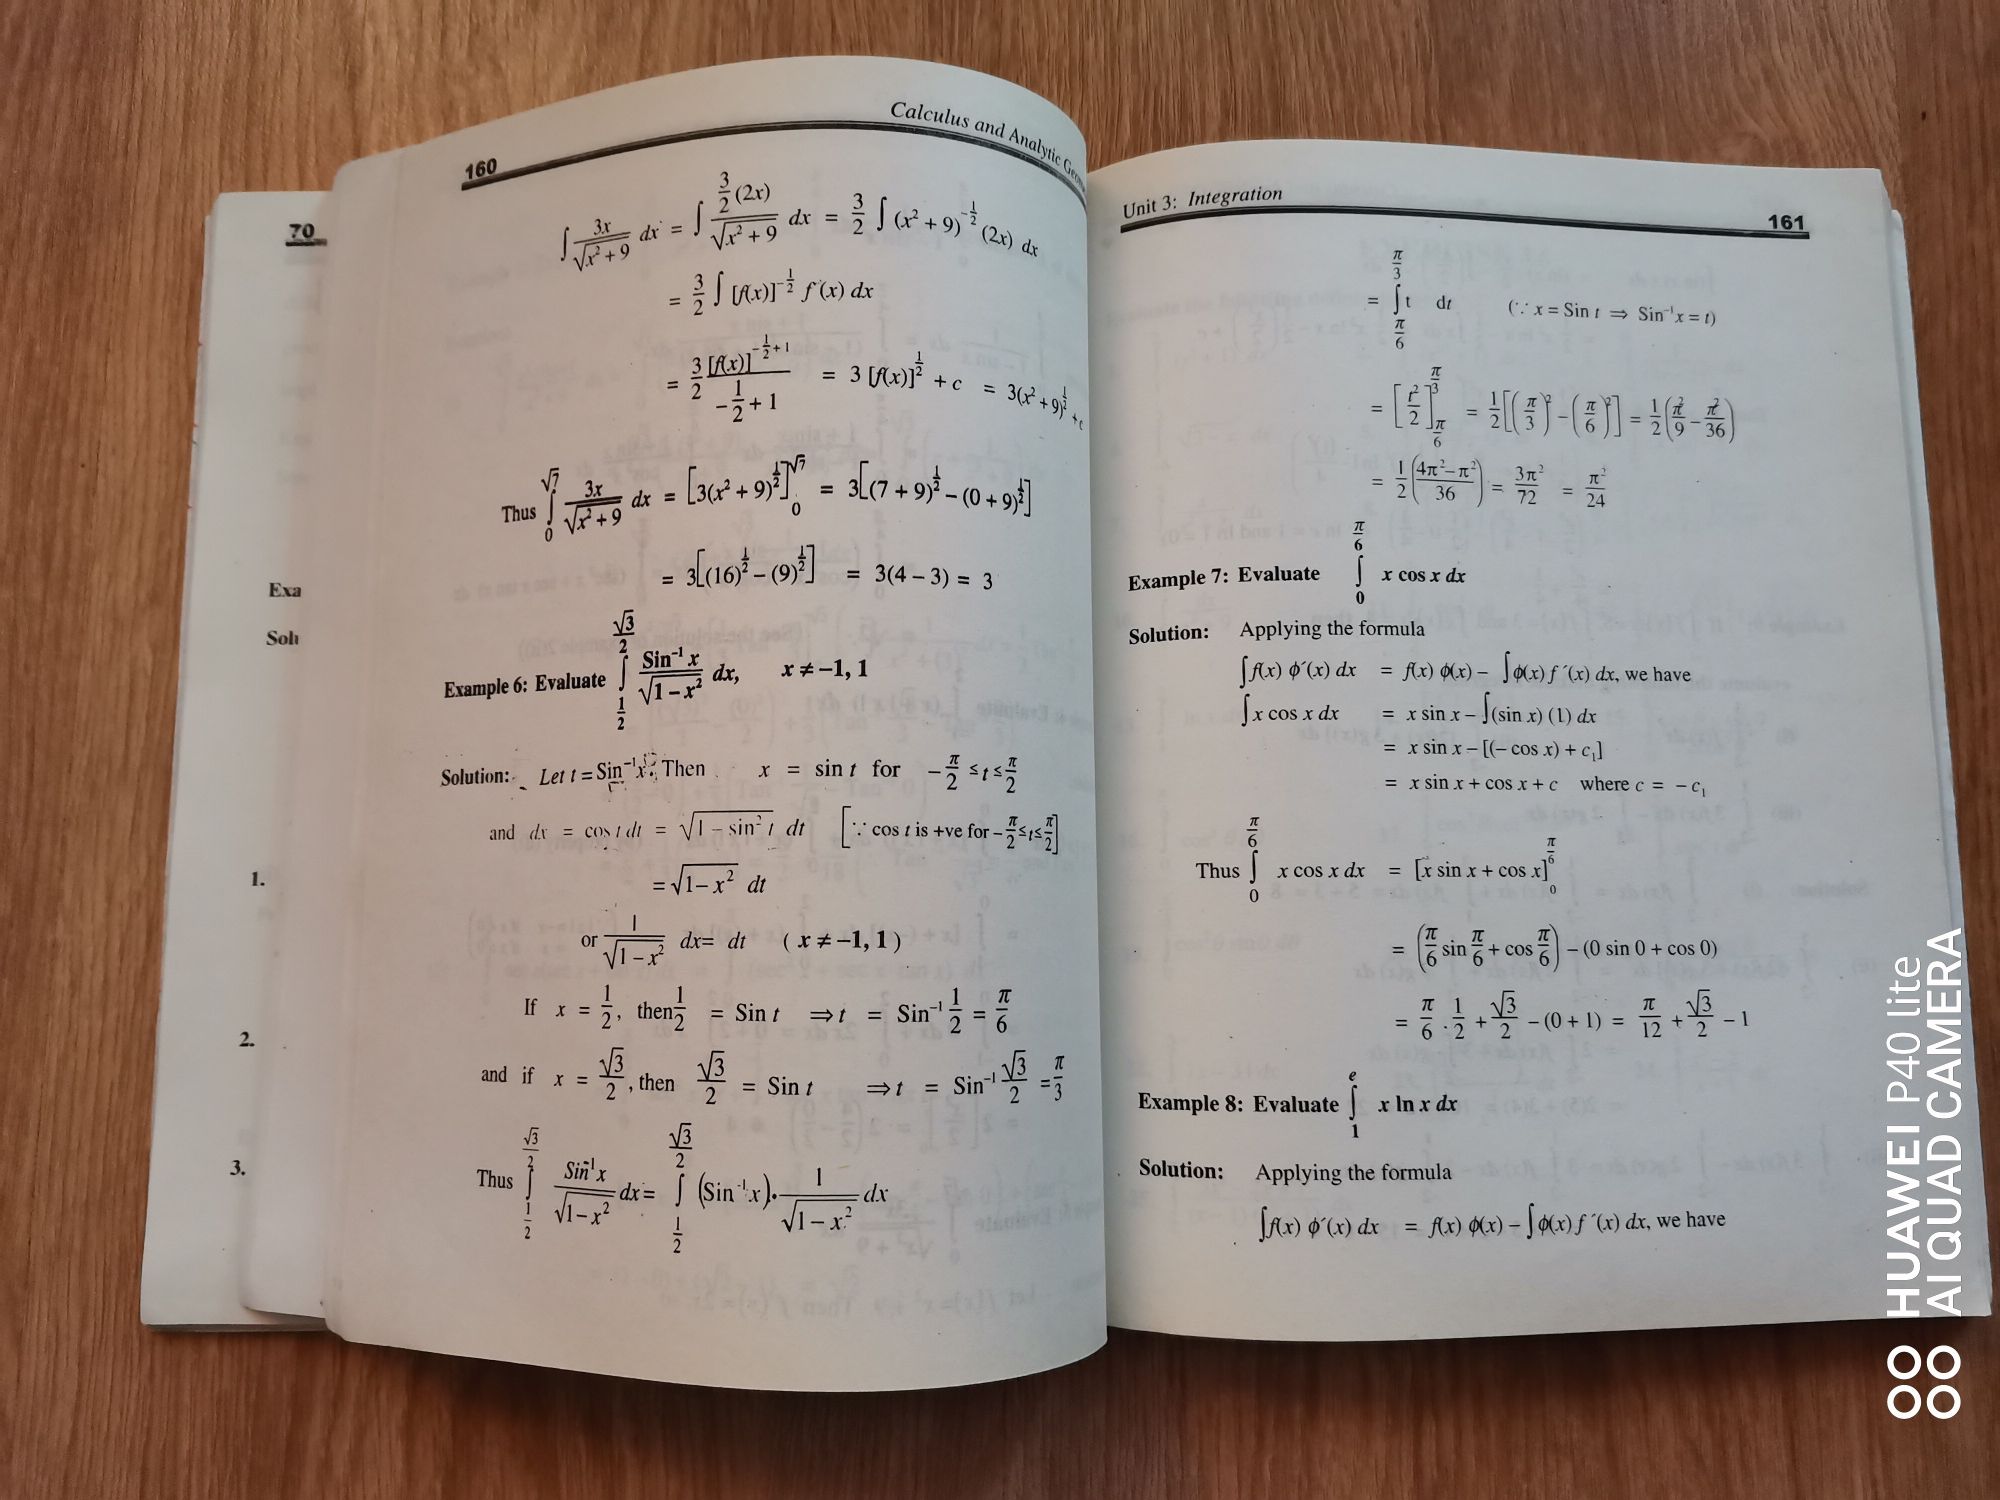 70
Exa
Solu
1.
2.
3.
160
Calculus and Analytic
∫ 3x/√(x² + 9) dx = ∫ (3/2 (2x))/√(x² + 9) dx = 3/2 ∫ (x² + 9)^(-1/2) (2x) dx
= 3/2 ∫ [f(x)]^(-1/2) f′(x) dx
= 3/2 [f(x)]^(-1/2 + 1)/(-1/2 + 1) = 3 [f(x)]^(1/2) + c = 3(x² + 9)^(1/2) + c
Thus ∫_0^√7 3x/√(x² + 9) dx = [3(x² + 9)^(1/2)]_0^√7 = 3[(7 + 9)^(1/2) – (0 + 9)^(1/2)]
= 3[(16)^(1/2) – (9)^(1/2)] = 3(4 – 3) = 3
Example 6: Evaluate ∫_(1/2)^(√3/2) Sin⁻¹ x/√(1 – x²) dx, x ≠ –1, 1
Solution: Let t = Sin⁻¹x. Then x = sin t for –π/2 ≤ t ≤ π/2
and dx = cos t dt = √(1 – sin² t) dt [∵ cos t is +ve for –π/2 ≤ t ≤ π/2]
= √(1– x²) dt
or 1/√(1 – x²) dx= dt ( x ≠ –1, 1 )
If x = 1/2, then 1/2 = Sin t ⇒ t = Sin⁻¹ 1/2 = π/6
and if x = √3/2, then √3/2 = Sin t ⇒ t = Sin⁻¹ √3/2 = π/3
Thus ∫_(1/2)^(√3/2) Sin⁻¹x/√(1– x²) dx = ∫_(1/2)^(√3/2) (Sin⁻¹x).1/√(1 – x²) dx
Unit 3: Integration
161
= ∫_(π/6)^(π/3) t dt (∵ x = Sin t ⇒ Sin⁻¹x = t)
= [t²/2]_(π/6)^(π/3) = 1/2[(π/3)² – (π/6)²] = 1/2(π²/9 – π²/36)
= 1/2((4π² – π²)/36) = 3π²/72 = π²/24
Example 7: Evaluate ∫_0^(π/6) x cos x dx
Solution: Applying the formula
∫f(x) ϕ′(x) dx = f(x) ϕ(x) – ∫ϕ(x) f ′(x) dx, we have
∫x cos x dx = x sin x – ∫(sin x) (1) dx
= x sin x – [(– cos x) + c₁]
= x sin x + cos x + c where c = – c₁
Thus ∫_0^(π/6) x cos x dx = [x sin x + cos x]_0^(π/6)
= (π/6 sin π/6 + cos π/6) – (0 sin 0 + cos 0)
= π/6 . 1/2 + √3/2 – (0 + 1) = π/12 + √3/2 – 1
Example 8: Evaluate ∫_1^e x ln x dx
Solution: Applying the formula
∫f(x) ϕ′(x) dx = f(x) ϕ(x) – ∫ϕ(x) f ′(x) dx, we have
HUAWEI P40 lite
AI QUAD CAMERA